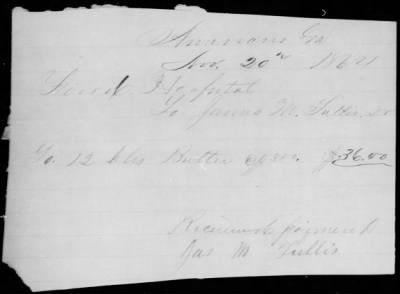 Americus Ga
Nov. 20th 1864
Hospital
To James M. Tullis, Dr
To 12 lbs Butter @ 3.00 $36.00
Received payment
Jas M Tullis